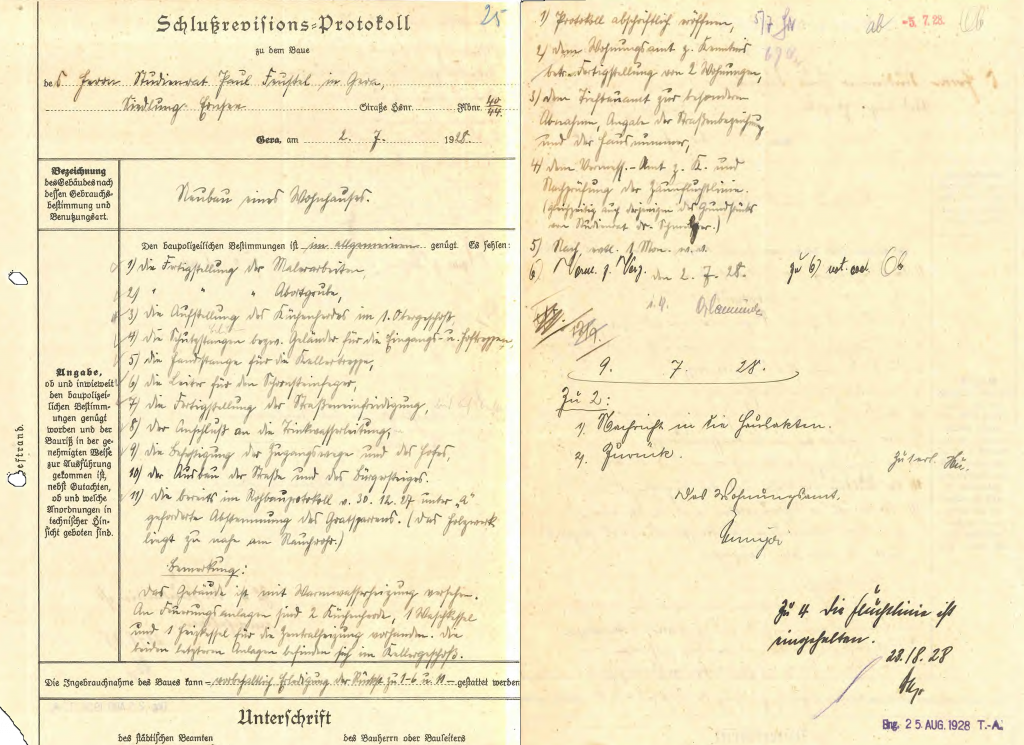 25
Schlußrevisions-Protokoll
zu dem Baue
des Herrn Studienrat Paul Feustel in Gera,
Siedlung Ernsee Straße Hsnr. Abnr. 40/44.
Gera, am 2. 7. 1928.
Bezeichnung
des Gebäudes nach
dessen Gebrauchs-
bestimmung und
Benutzungsart.
Neubau eines Wohnhauses.
Angabe,
ob und inwieweit
den baupolizei-
lichen Bestimm-
ungen genügt
worden und der
Bauriß in der ge-
nehmigten Weise
zur Ausführung
gekommen ist,
nebst Gutachten,
ob und welche
Anordnungen in
technischer Hin-
sicht geboten sind.
Heftrand.
Den baupolizeilichen Bestimmungen ist im allgemeinen genügt. Es fehlen:
1) die Fertigstellung der Malerarbeiten,
2) " " " Abortgrube,
3) die Aufstellung des Küchenherdes im 1. Obergeschoß,
4) die Schutzstangen bezw. Geländer für die Eingangs- u. Hoftreppen,
5) die Handstange für die Kellertreppe,
6) die Leiter für den Schornsteinfeger,
7) die Fertigstellung der Straßeneinfriedigung,
8) der Anschluß an die Trinkwasserleitung,
9) die Befestigung der Zugangswege und des Hofes,
10) der Ausbau der Straße und des Bürgersteiges.
11) Die bereits im Rohbauprotokoll v. 30. 12. 27 unter "a"
geforderte Abstemmung des Gratsparrens. (Das Holzwerk
liegt zu nahe am Rauchrohr.)
Bemerkung:
Das Gebäude ist mit Warmwasserheizung versehen.
An Feuerungsanlagen sind 2 Küchenherde, 1 Waschkessel
und 1 Heizkessel für die Zentralheizung vorhanden. Die
beiden letzteren Anlagen befinden sich im Kellergeschoß.
Die Ingebrauchnahme des Baues kann vorbehaltlich Erledigung der Punkte zu 1-6 u. 11 gestattet werden
Unterschrift
des städtischen Beamten des Bauherrn oder Bauleiters
1) Protokoll abschriftlich eröffnen,
5/7
ab -5. 7. 28.
2) dem Wohnungsamt z. Kenntnis
betr. Fertigstellung von 2 Wohnungen,
3) dem Tiefbauamt zur besonderen
Abnahme, Angabe der Straßenbezeichung
und der Hausnummer,
4) dem Vermess.-Amt z. K. und
Nachprüfung der Zaunfluchtlinie.
(gleichzeitig auf derjenigen des Grundstücks
von Studienrat Dr.
5) Nach 1 Mon. w. v.
6) den 2. 7. 28.
zu 6)
9. 7. 28.
Zu 2:
1) Nachricht in die Hausakten.
2) Zurück.
Das Wohnungsamt.
Zu 4 die Fluchtlinie ist
eingehalten.
23./8. 28
Eing. 25. AUG. 1928 T.-A.